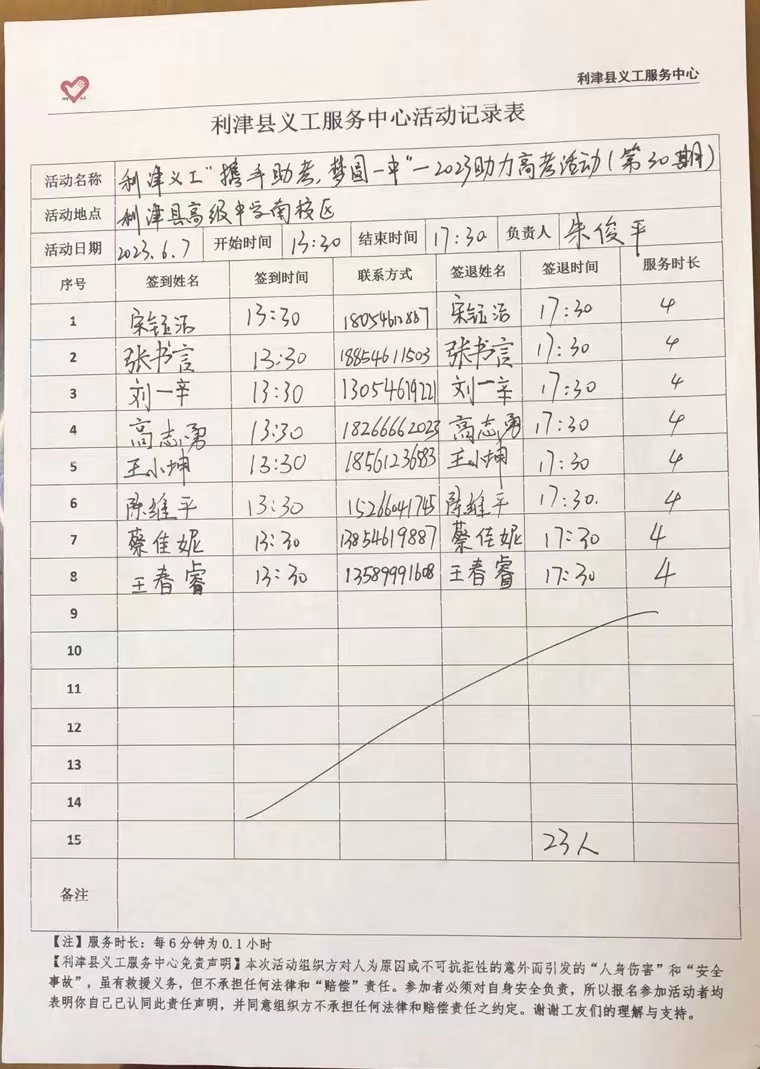 利津县义工服务中心
利津县义工服务中心活动记录表
活动名称 利津义工"携手助考,梦圆一中"—2023助力高考活动(第30期)
活动地点 利津县高级中学南校区
活动日期 2023.6.7 开始时间 13:30 结束时间 17:30 负责人 朱俊平
序号 签到姓名 签到时间 联系方式 签退姓名 签退时间 服务时长
1 宋钰洁 13:30 18054612887 宋钰洁 17:30 4
2 张书言 13:30 18854611503 张书言 17:30 4
3 刘一辛 13:30 13054619221 刘一辛 17:30 4
4 高志勇 13:30 18266662023 高志勇 17:30 4
5 王小坤 13:30 18561236583 王小坤 17:30 4
6 陈维平 13:30 15266041745 陈维平 17:30. 4
7 蔡佳妮 13:30 13854619887 蔡佳妮 17:30 4
8 王春睿 13:30 13589991608 王春睿 17:30 4
9
10
11
12
13
14
15 23人
备注
【注】服务时长:每6分钟为0.1小时
【利津县义工服务中心免责声明】本次活动组织方对人为原因或不可抗拒性的意外而引发的“人身伤害”和“安全
事故”,虽有救援义务,但不承担任何法律和“赔偿”责任。参加者必须对自身安全负责,所以报名参加活动者均
表明你自己已认同此责任声明,并同意组织方不承担任何法律和赔偿责任之约定。谢谢工友们的理解与支持。